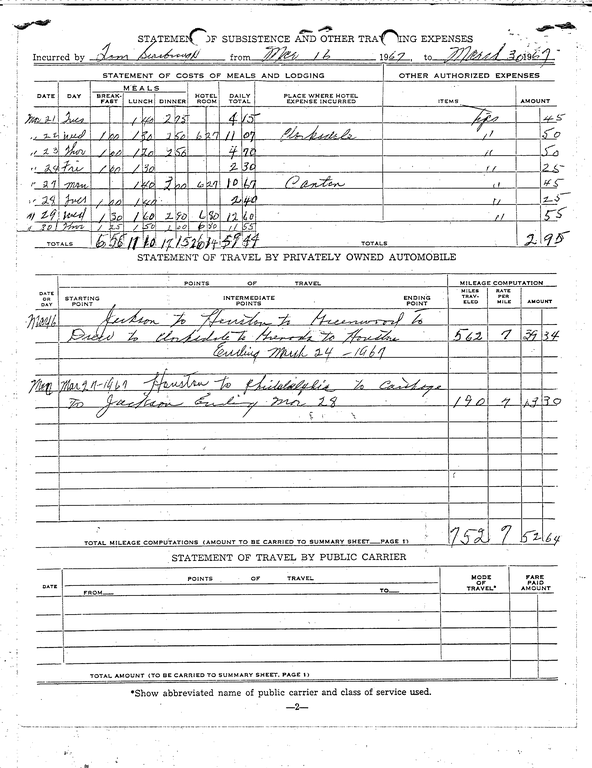 STATEMEN OF SUBSISTENCE AND OTHER TRA ING EXPENSES
Incurred by Tom Scarbrough from Mar 16 1967 to March 30 1967
STATEMENT OF COSTS OF MEALS AND LODGING OTHER AUTHORIZED EXPENSES
DATE DAY MEALS BREAK-FAST LUNCH DINNER HOTEL ROOM DAILY TOTAL PLACE WHERE HOTEL EXPENSE INCURRED ITEMS AMOUNT
Mar 21 Tues 1 40 2 75 4 15 Tips 45
" 22 Wed 1 00 1 30 2 50 6 27 11 07 Clarksdale " 50
" 23 Thur 1 00 1 20 2 50 4 70 " 50
" 24 Fri 1 00 1 30 2 30 " 25
" 27 Mon 1 40 3 00 6 27 10 67 Canton " 45
" 28 Tues 1 00 1 40 2 40 " 25
" 29 Wed 1 30 1 60 2 90 6 80 12 60 " 55
" 30 Thur 1 25 1 50 6 80 11 55
TOTALS TOTALS 2 95
STATEMENT OF TRAVEL BY PRIVATELY OWNED AUTOMOBILE
DATE OR DAY POINTS OF TRAVEL MILEAGE COMPUTATION
STARTING POINT INTERMEDIATE POINTS ENDING POINT MILES TRAV-ELED RATE PER MILE AMOUNT
Jackson to Houston to Greenwood to
Drew to Clarksdale to to Houston 562 7 39 34
Ending March 24 - 1967
Mon Mar 27-1967 Houston to Philadelphia to Carthage
to Jackson Ending Mar 28 190 7 13 30
TOTAL MILEAGE COMPUTATIONS (AMOUNT TO BE CARRIED TO SUMMARY SHEET PAGE 1) 752 7 52 64
STATEMENT OF TRAVEL BY PUBLIC CARRIER
DATE POINTS OF TRAVEL MODE OF TRAVEL* FARE PAID AMOUNT
FROM TO
TOTAL AMOUNT (TO BE CARRIED TO SUMMARY SHEET, PAGE 1)
*Show abbreviated name of public carrier and class of service used.
—2—